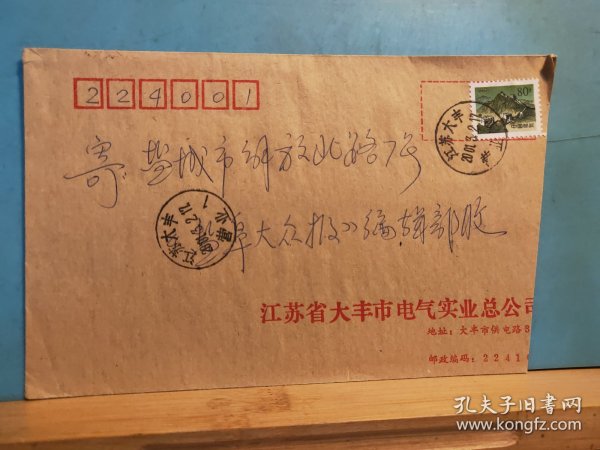 224001
80分
中国邮政
江苏大丰
寄 盐城市解放北路7号
江苏大丰
1
阜大众报》编辑部收
江苏省大丰市电气实业总公司
地址：大丰市供电路8
邮政编码：2241
孔夫子旧书网
www.kongfz.com